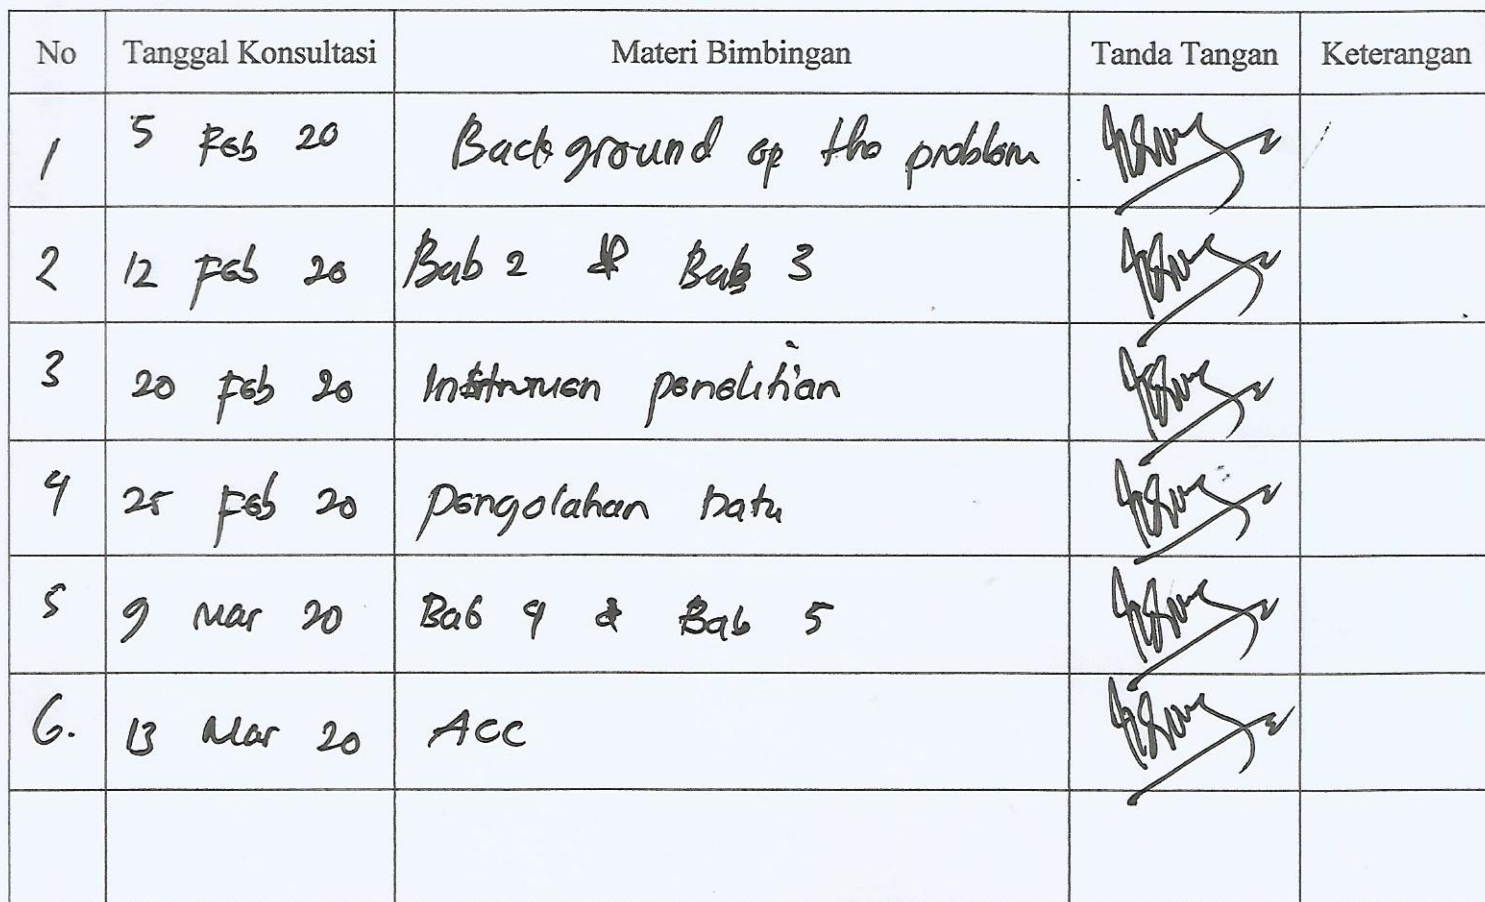 No Tanggal Konsultasi Materi Bimbingan Tanda Tangan Keterangan
1 5 Feb 20 Background of the problem
2 12 Feb 20 Bab 2 & Bab 3
3 20 Feb 20 Instrumen penelitian
4 25 Feb 20 Pengolahan Data
5 9 Mar 20 Bab 4 & Bab 5
6. 13 Mar 20 Acc